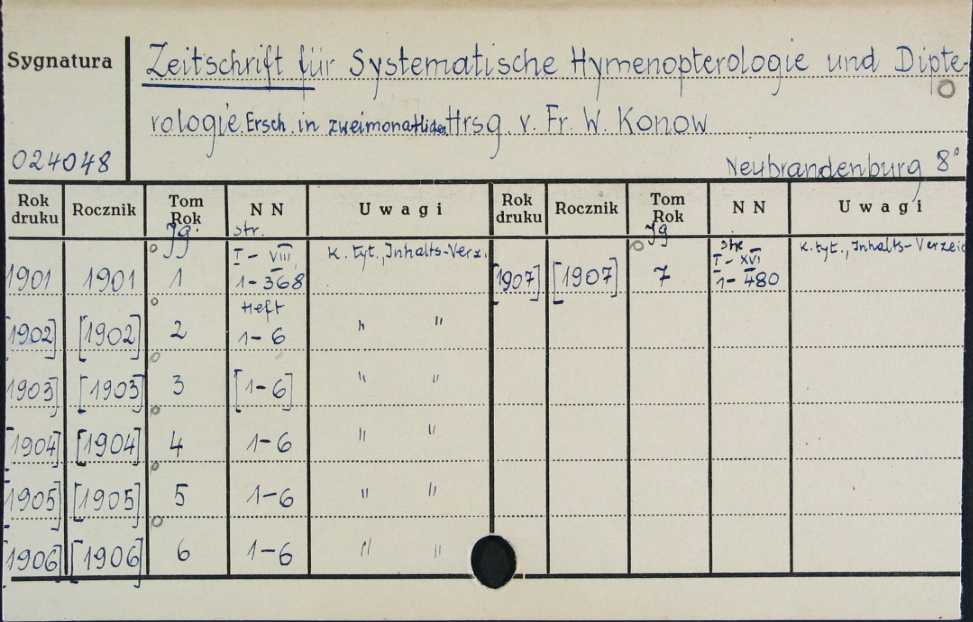 Sygnatura
Zeitschrift für Systematische Hymenopterologie und Dipte-
rologie. Ersch. in zweimonatliche Hrsg. v. Fr. W. Konow
024048
Neubrandenburg 8°
Rok druku Rocznik Tom Rok N N Uwagi Rok druku Rocznik Tom Rok N N Uwagi
Jg. str. Jg str.
I - VIII k. tyt., Inhalts-Verz. I - XVI k. tyt., Inhalts-Verzeic
1901 1901 1 1-368 [1907] [1907] 7 1-480
Heft
[1902] [1902] 2 1-6 " "
1903] [1903] 3 [1-6] " "
[1904] [1904] 4 1-6 " "
[1905] [1905] 5 1-6 " "
[1906] [1906] 6 1-6 " "